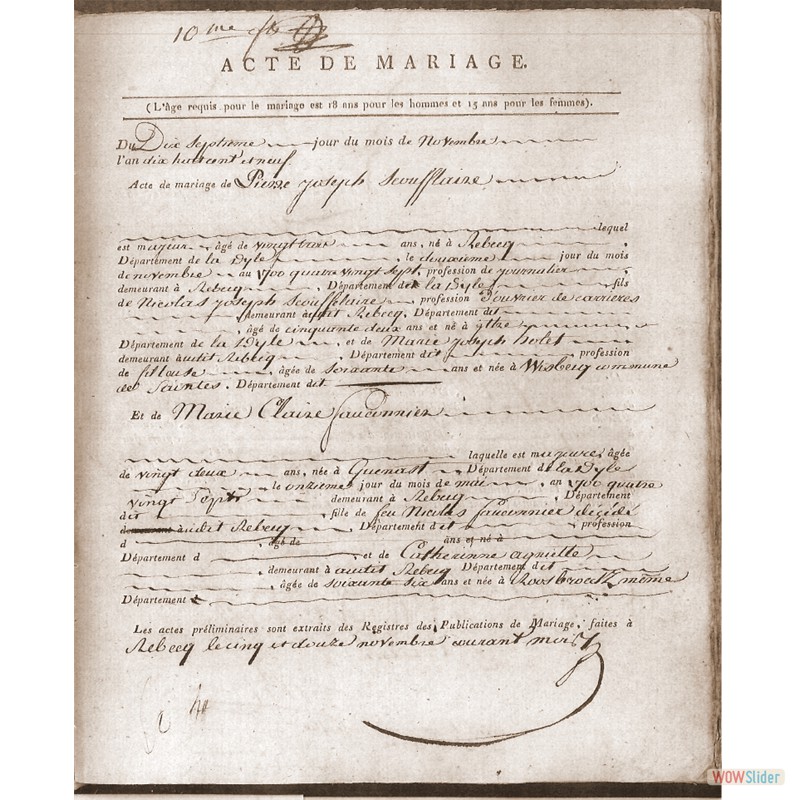 10 me
ACTE DE MARIAGE.
(L'âge requis pour le mariage est 18 ans pour les hommes et 15 ans pour les femmes).
Du Dix Septieme jour du mois de Novembre
l'an dix huit cent et neuf
Acte de mariage de Pierre joseph Scoufflaire
lequel
est majeur âgé de vingt trois ans, né à Rebecq
Département de la Dyle, le douxieme jour du mois
de novembre au 1700 quatre vingt sept, profession de journalier
demeurant à Rebecq, Département de la Dyle, fils
de Nicolas joseph Scoufflaire, profession d'ouvrier de carrieres
demeurant audit Rebecq, Département dit
, âgé de cinquante deux ans et né à yttre
Département de la Dyle, et de Marie joseph
demeurant audit Rebecq, Département dit profession
de fileuse, âgée de soixante ans et née à Wisbecq commune
de Saintes, Département dit
Et de Marie Claire fauconnier
laquelle est majeure, âgée
de vingt deux ans, née à Quenast, Département de la Dyle
le onzieme jour du mois de mai, an 1700 quatre
vingt Sept demeurant à Rebecq, Département
dit, fille de feu Nicolas fauconnier décédé
audit Rebecq, Département dit profession
d, âgé de ans et né à
Département d et de Catherinne
, demeurant à audit Rebecq Département dit
, âgée de soixante six ans et née à Roosbroeck même
Département
Les actes préliminaires sont extraits des Registres des Publications de Mariage, faites à
Rebecq le cinq et douze novembre courant mois
WOWSlider